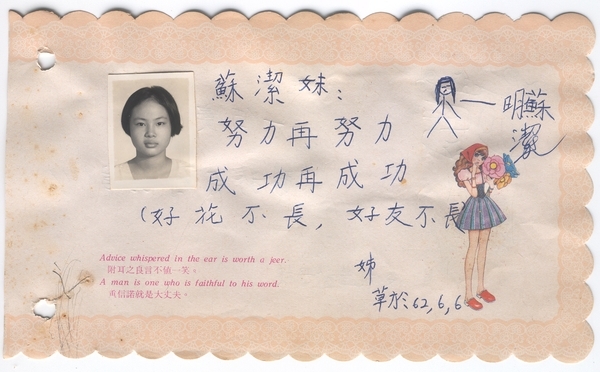 蘇潔妹：
努力再努力
成功再成功
(好花不長，好友不長
姊
草於62,6,6.
明蘇
潔
Advice whispered in the ear is worth a jeer.
附耳之良言不值一笑。
A man is one who is faithful to his word.
重信諾就是大丈夫。